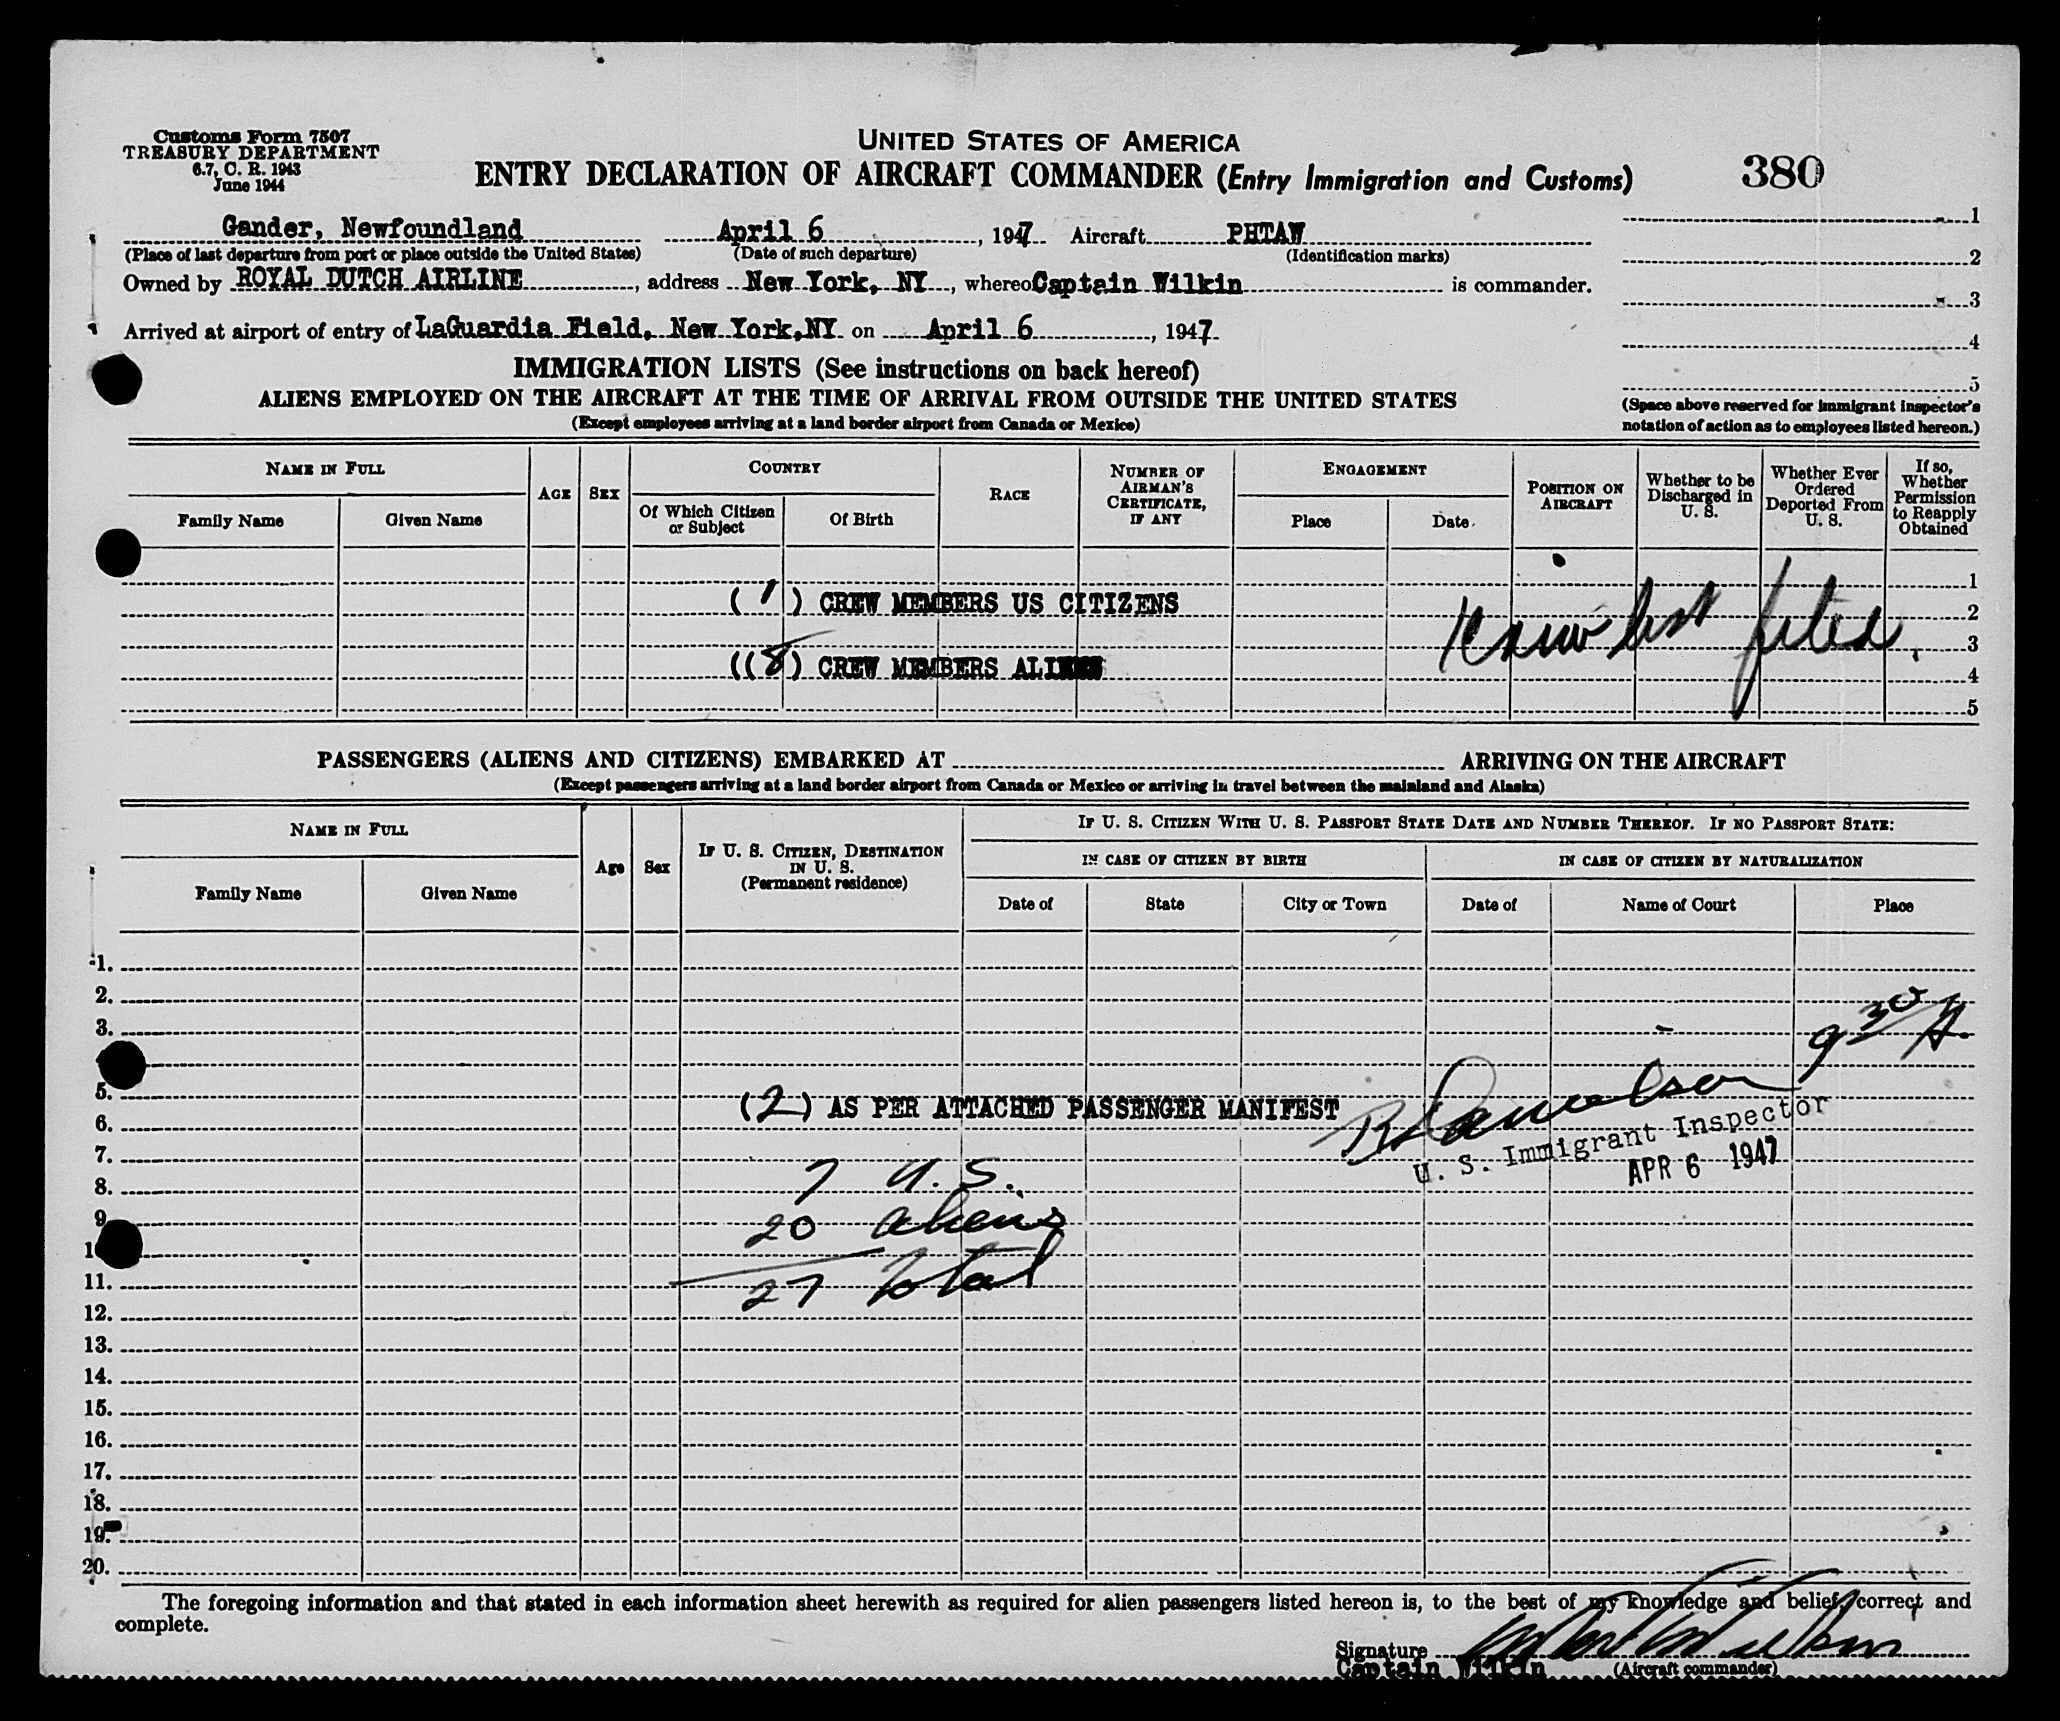 Customs Form 7507
TREASURY DEPARTMENT
6.7, C. R. 1943
June 1944
UNITED STATES OF AMERICA
ENTRY DECLARATION OF AIRCRAFT COMMANDER (Entry Immigration and Customs)
380
Gander, Newfoundland April 6, 1947 Aircraft PHTAW
(Place of last departure from port or place outside the United States) (Date of such departure) (Identification marks)
Owned by ROYAL DUTCH AIRLINE, address New York, NY, whereof Captain Wilkin is commander.
Arrived at airport of entry of LaGuardia Field, New York, NY on April 6, 1947
1
2
3
4
5
(Space above reserved for immigrant inspector's
notation of action as to employees listed hereon.)
IMMIGRATION LISTS (See instructions on back hereof)
ALIENS EMPLOYED ON THE AIRCRAFT AT THE TIME OF ARRIVAL FROM OUTSIDE THE UNITED STATES
(Except employees arriving at a land border airport from Canada or Mexico)
NAME IN FULL
Family Name
Given Name
AGE
SEX
COUNTRY
Of Which Citizen
or Subject
Of Birth
RACE
NUMBER OF
AIRMAN'S
CERTIFICATE,
IF ANY
ENGAGEMENT
Place
Date
POSITION ON
AIRCRAFT
Whether to be
Discharged in
U. S.
Whether Ever
Ordered
Deported From
U. S.
If so,
Whether
Permission
to Reapply
Obtained
1
( 1 ) CREW MEMBERS US CITIZENS
2
3
((8) CREW MEMBERS ALIENS
4
5
list filed.
PASSENGERS (ALIENS AND CITIZENS) EMBARKED AT ARRIVING ON THE AIRCRAFT
(Except passengers arriving at a land border airport from Canada or Mexico or arriving in travel between the mainland and Alaska)
NAME IN FULL
Family Name
Given Name
Age
Sex
IF U. S. CITIZEN, DESTINATION
IN U. S.
(Permanent residence)
IF U. S. CITIZEN WITH U. S. PASSPORT STATE DATE AND NUMBER THEREOF. IF NO PASSPORT STATE:
IN CASE OF CITIZEN BY BIRTH
IN CASE OF CITIZEN BY NATURALIZATION
Date of
State
City or Town
Date of
Name of Court
Place
1.
2.
3.
9 30 A.
5.
(2) AS PER ATTACHED PASSENGER MANIFEST
U. S. Immigrant Inspector
APR 6 1947
6.
7.
7 U.S.
8.
9
20 aliens
1
27 Total
11.
12.
13.
14.
15.
16.
17.
18.
19.
20.
The foregoing information and that stated in each information sheet herewith as required for alien passengers listed hereon is, to the best of my knowledge and belief, correct and
complete.
Signature
Captain Wilkin (Aircraft commander)